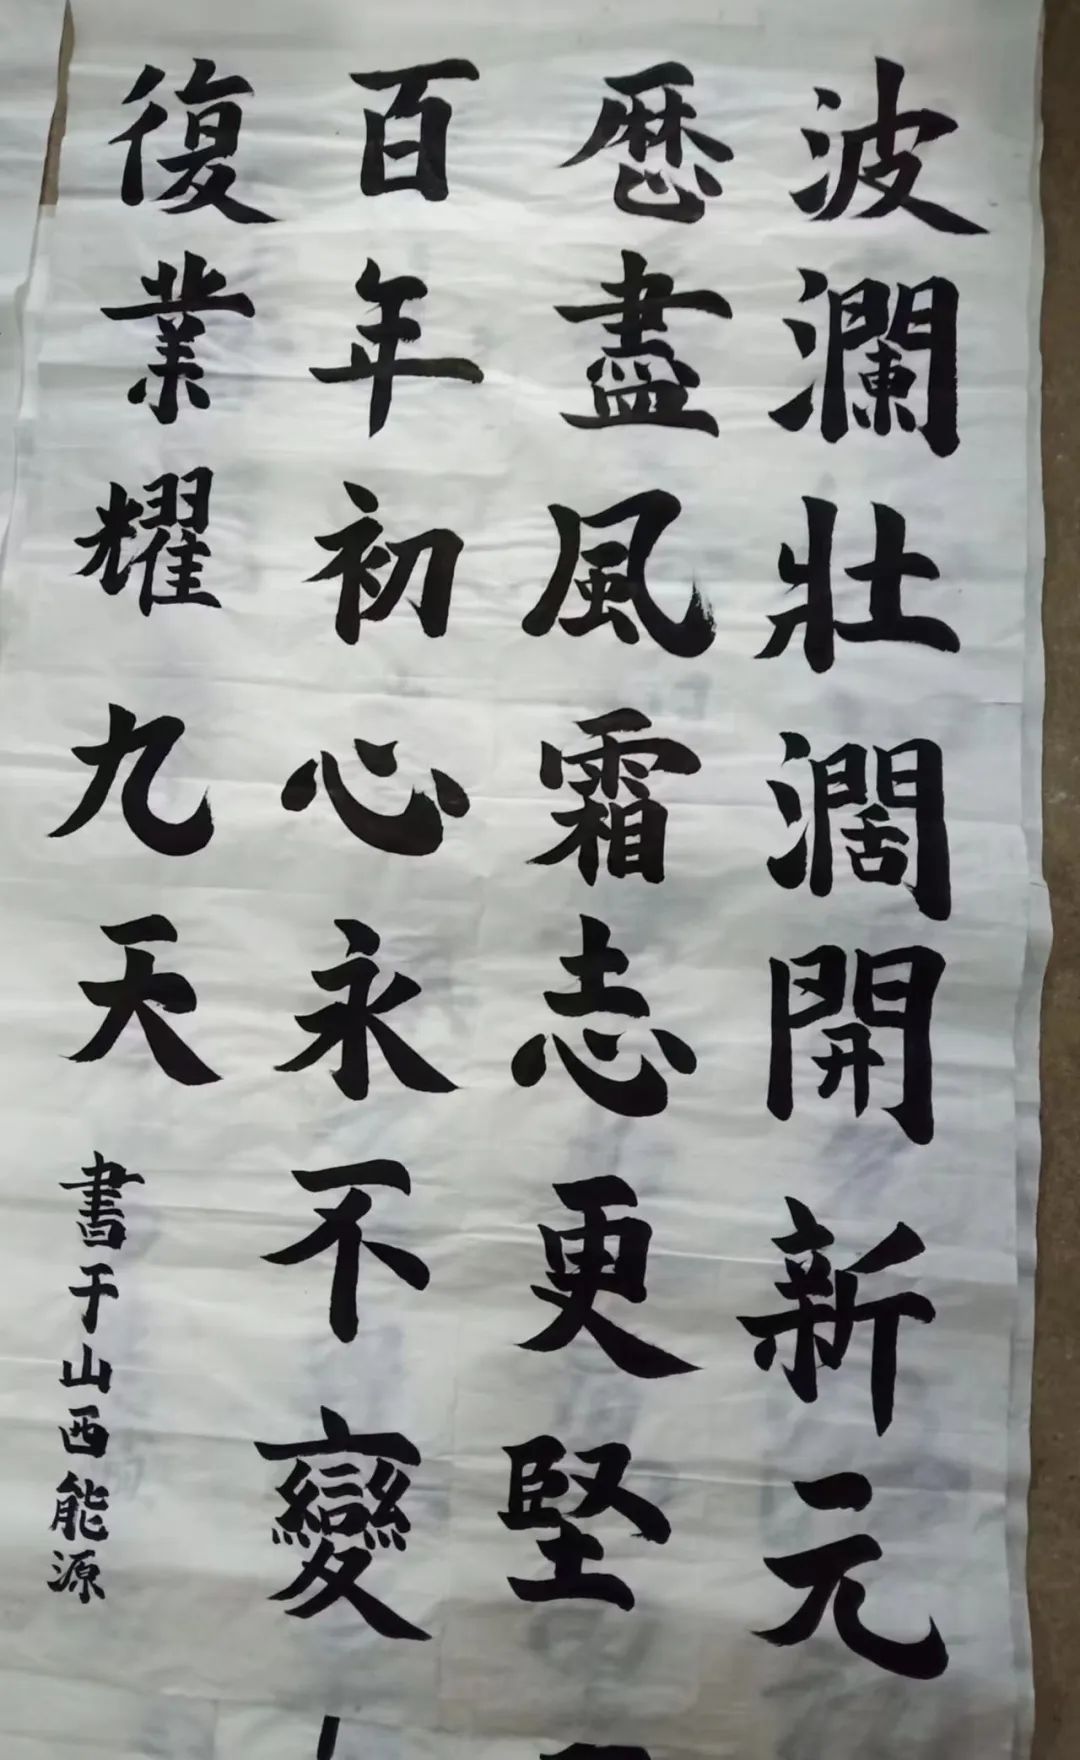 波瀾壯濶開新元
歷盡風霜志更堅
百年初心永不變
復業耀九天
書于山西能源